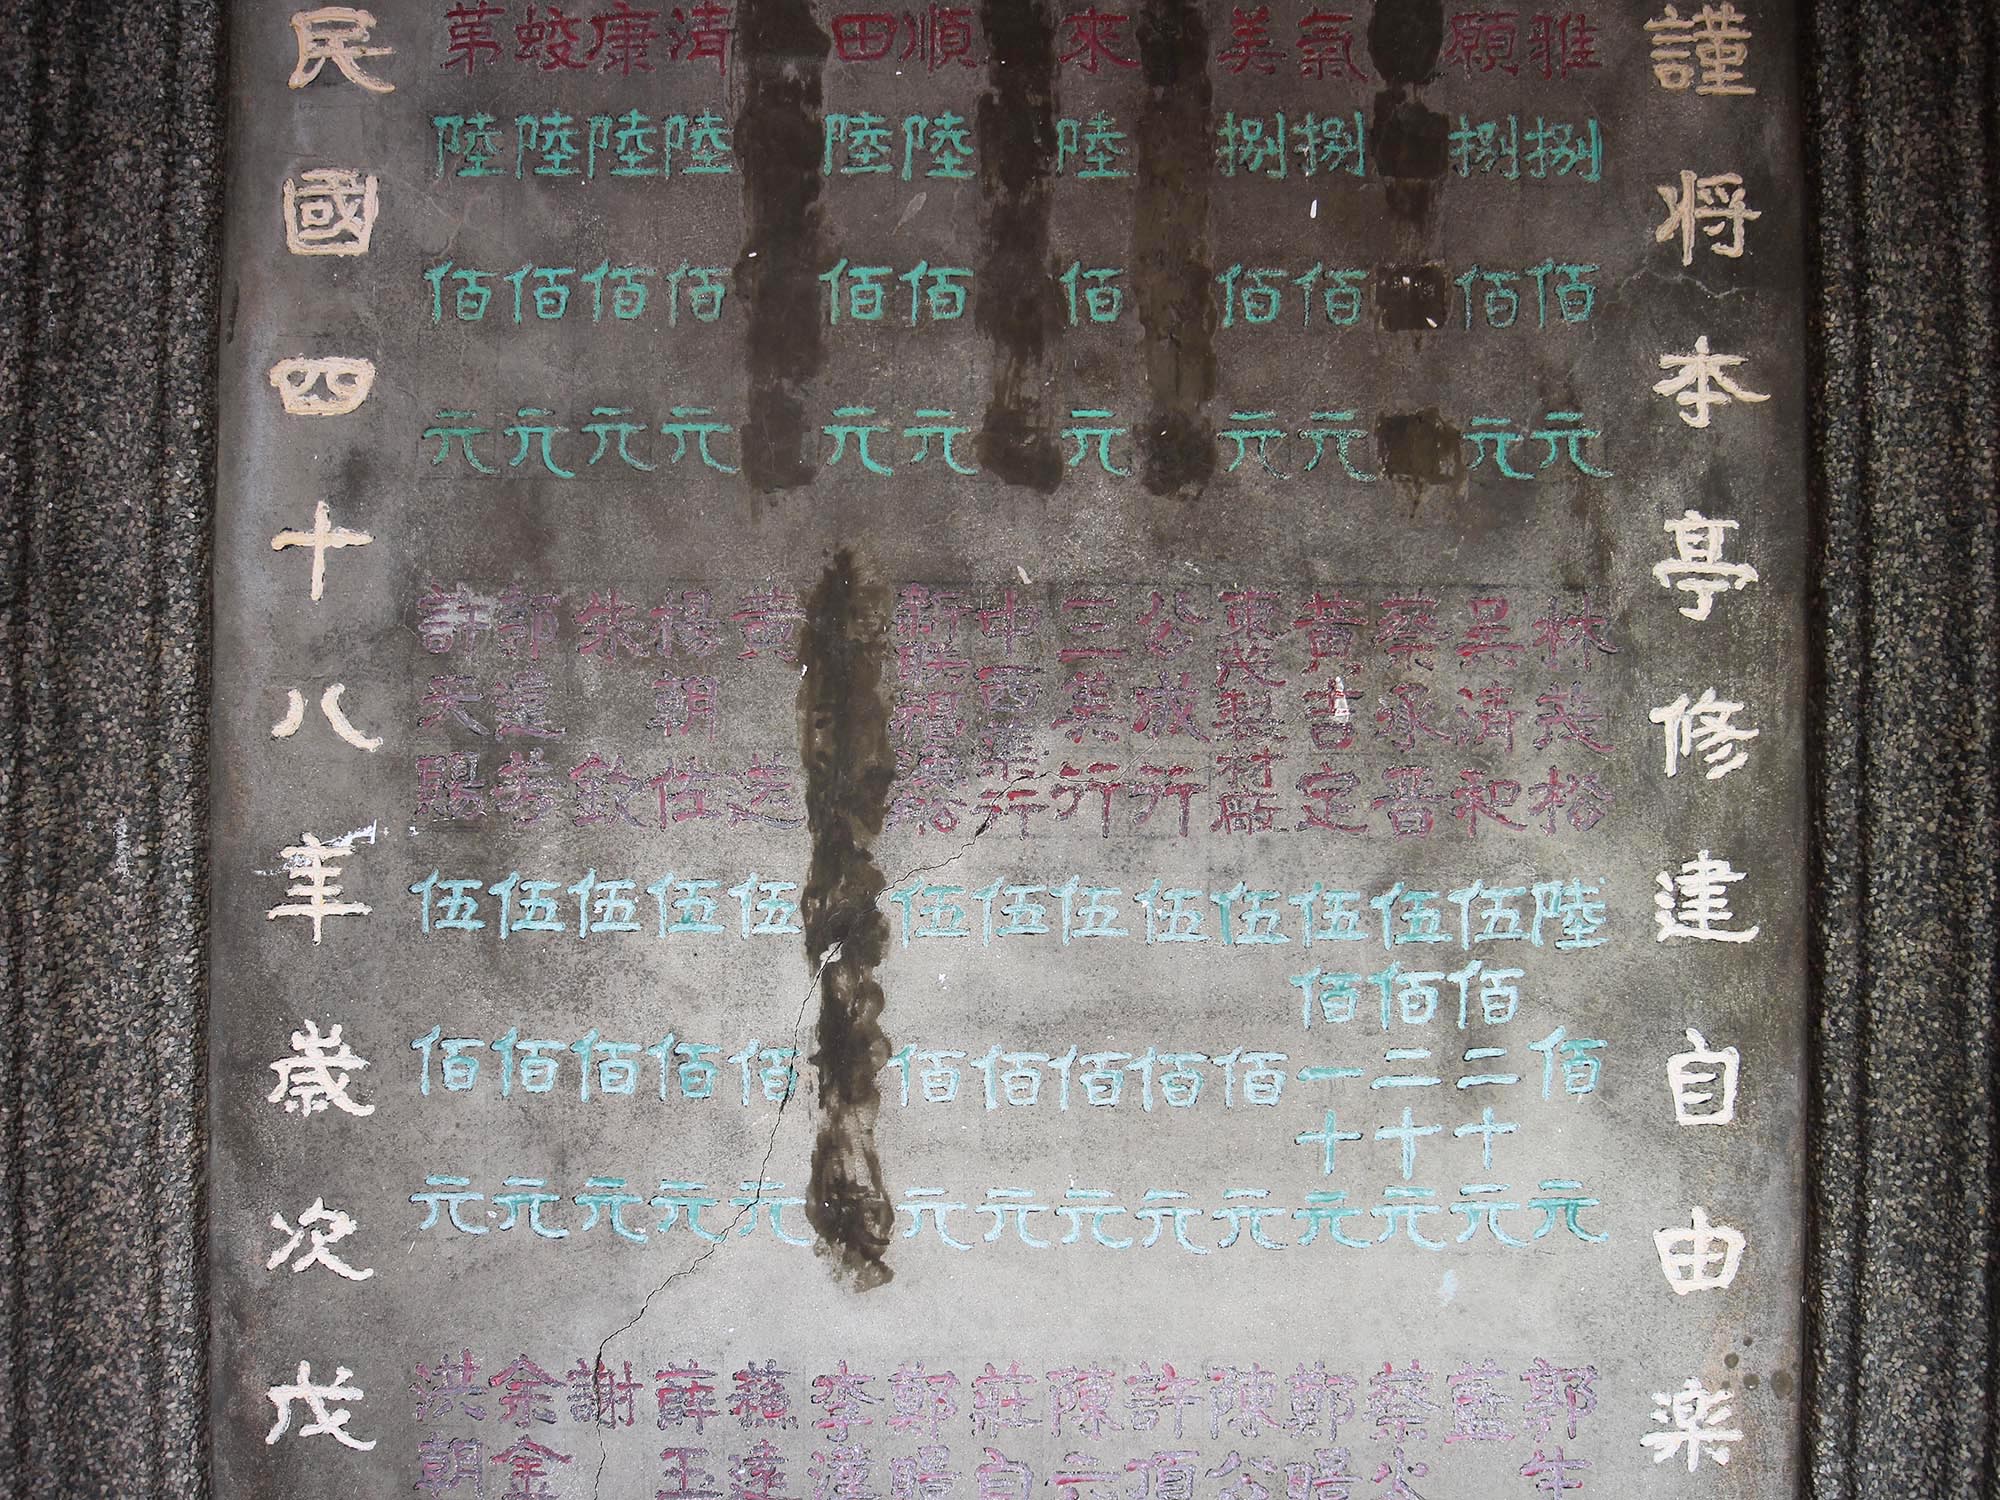 謹將本亭修建自由樂
雅捌佰元
願捌佰元
氣捌佰元
美捌佰元
來陸佰元
順陸佰元
田陸佰元
清陸佰元
康陸佰元
蛟陸佰元
弟陸佰元
林茂松陸佰元
吳清和伍佰二十元
蔡永晋伍佰二十元
黃吉定伍佰一十元
東茂製材廠伍佰元
公成行伍佰元
三美行伍佰元
中西藥行伍佰元
新聯福伍佰元
黃差伍佰元
楊朝仕伍佰元
朱欽伍佰元
郭萱芳伍佰元
許天賜伍佰元
郭牛
藍
蔡火
鄭賜
陳公
許頂
陳六
莊白
鄭賜
李漢
蘇遠
薛玉
謝
余金
洪朝
民國四十八年歲次戊